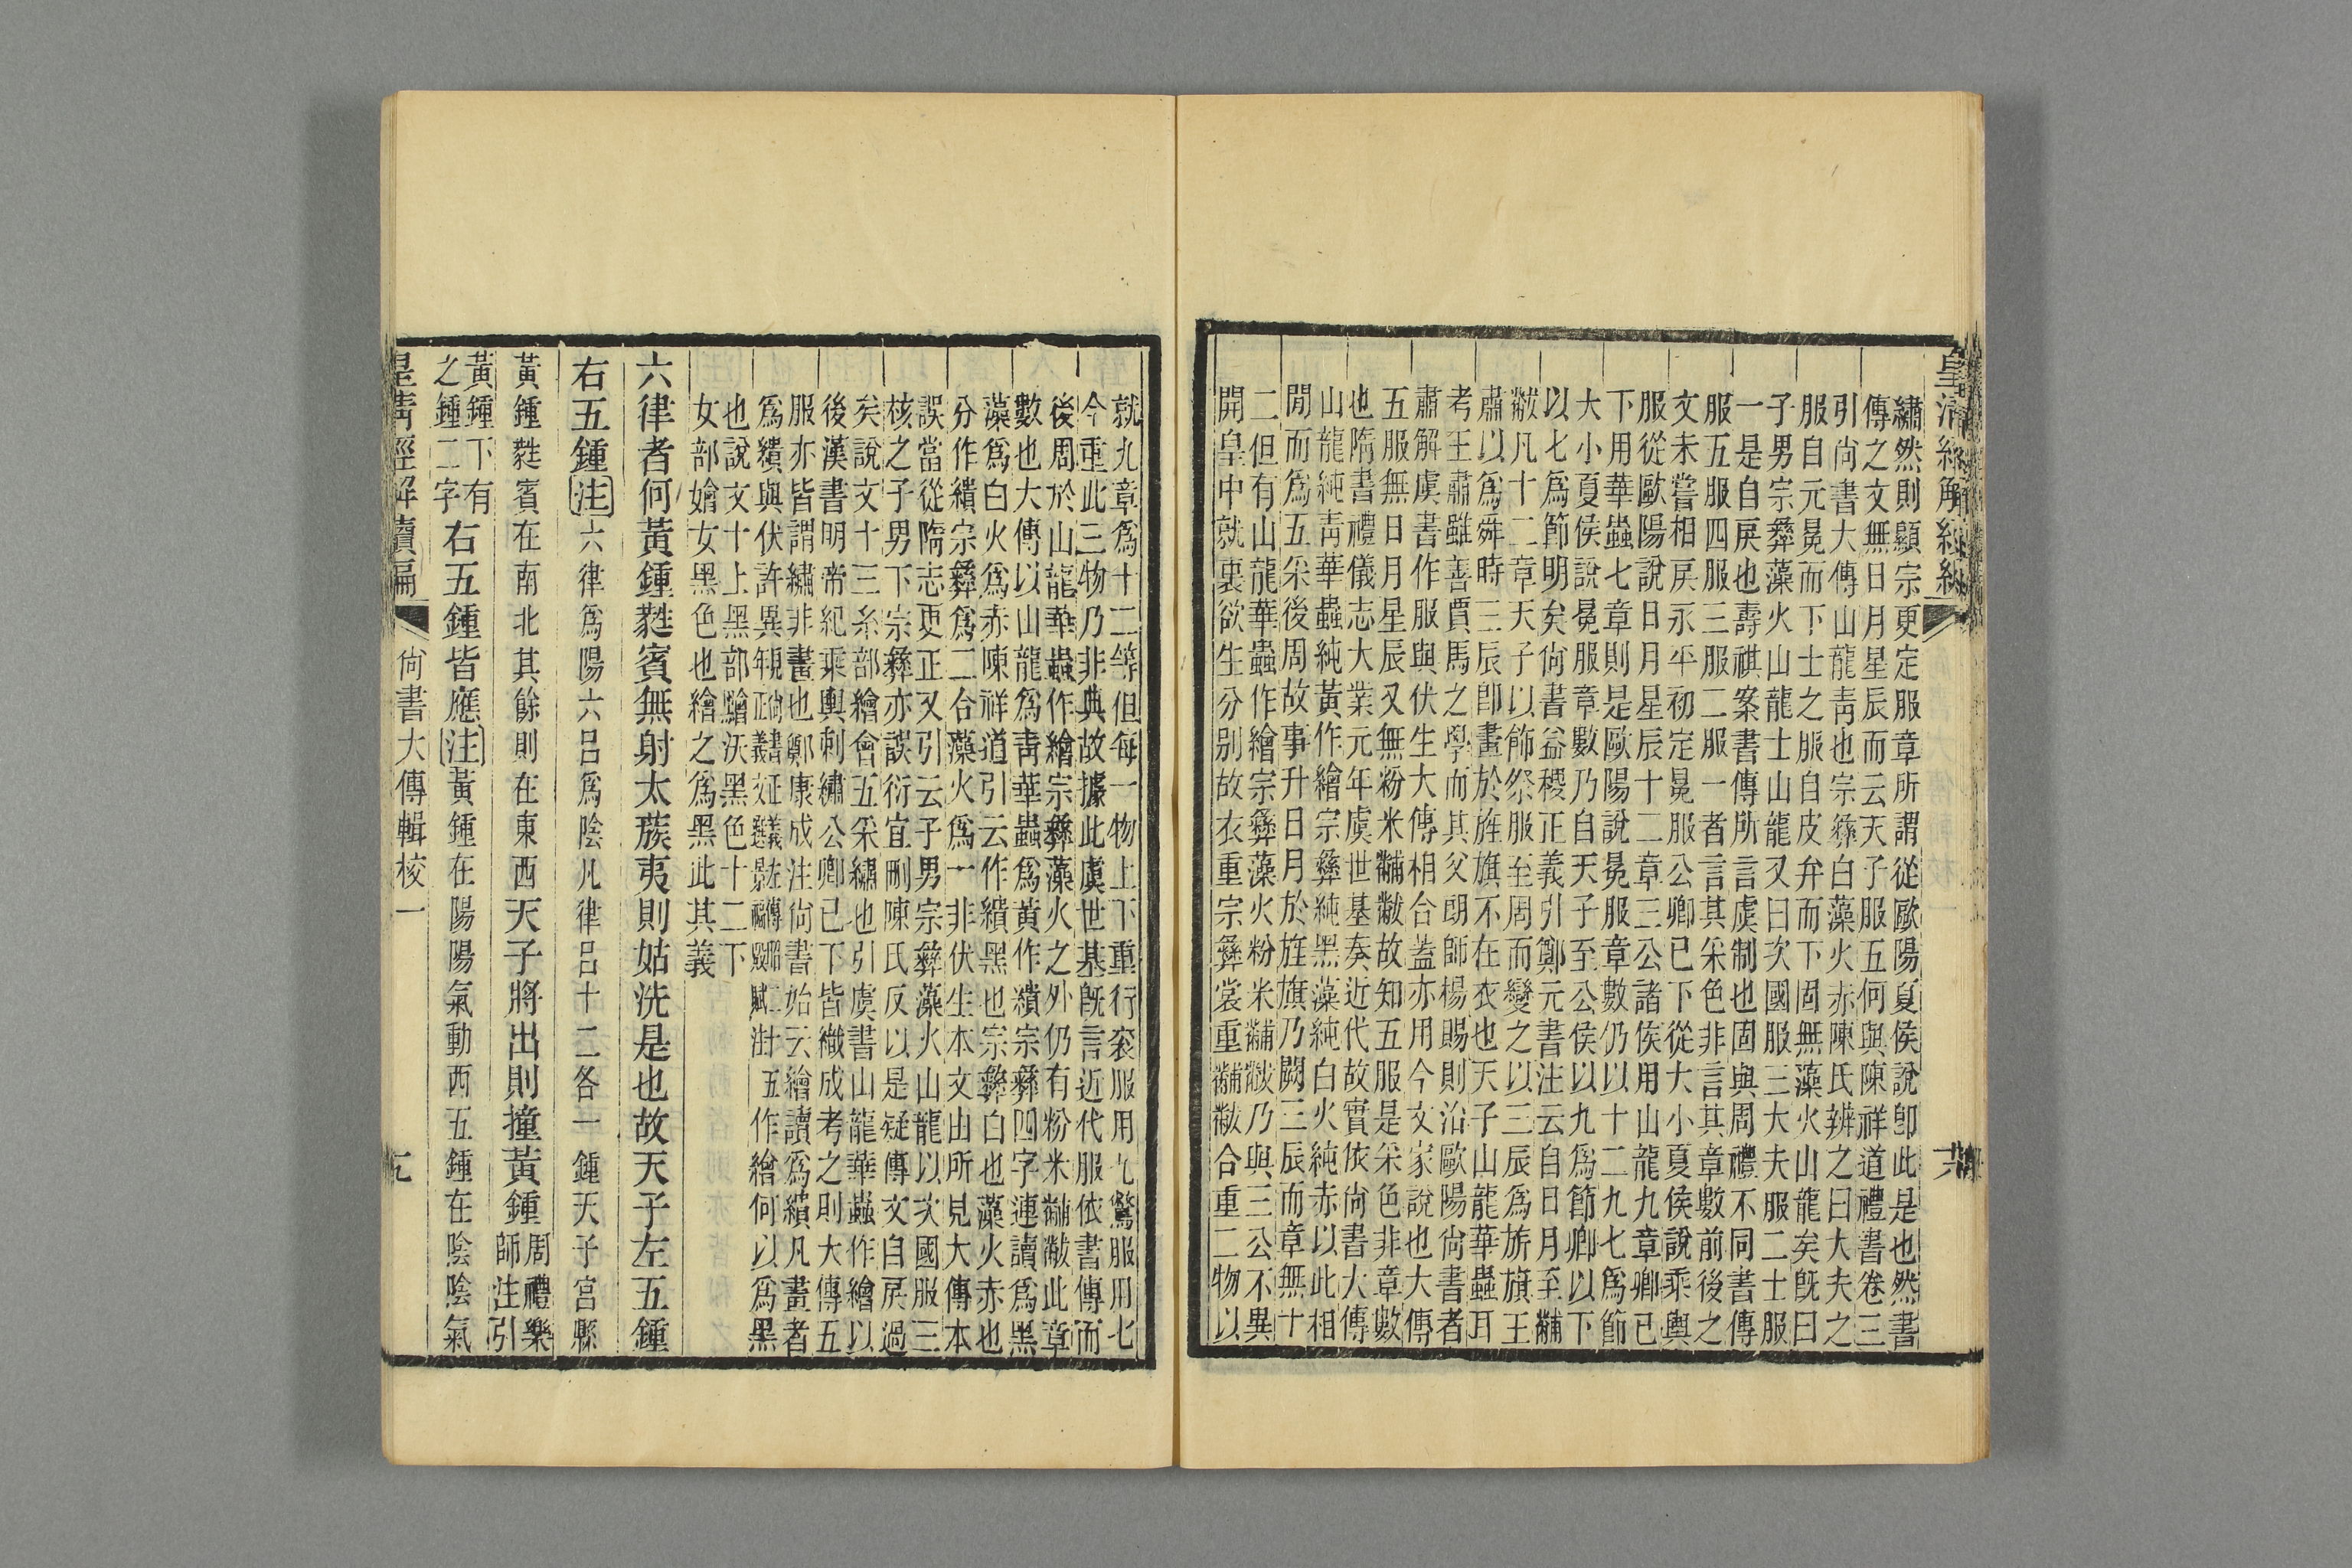 繡然則顯宗更定服章所謂從歐陽夏侯說卽此是也然書
傳之文無日月星辰而云天子服五何與陳祥道禮書卷三
引尙書大傳山龍靑也宗彝白藻火赤陳氏辨之曰大夫之
服自元冕而下士之服自皮弁而下固無藻火山龍矣旣曰
子男宗彝藻火山龍士山龍又曰次國服三大夫服二士服
一是自戾也壽祺案書傳所言虞制也固與周禮不同書傳
服五服四服三服二服一者言其采色非言其章數前後之
文未嘗相戾永平初定冕服公卿已下從大小夏侯說乘輿
服從歐陽說日月星辰十二章三公諸侯用山龍九章卿已
下用華蟲七章則是歐陽說冕服章數仍以十二九七爲節
大小夏侯說冕服章數乃自天子至公侯以九爲節卿以下
以七爲節明矣尙書益稷正義引鄭元書注云自日月至黼
黻凡十二章天子以飾祭服至周而變之以三辰爲旂旗王
肅以爲舜時三辰卽畫於旌旗不在衣也天子山龍華蟲耳
考王肅雖善賈馬之學而其父朗師楊賜則沿歐陽尙書者
肅解虞書作服與伏生大傳相合蓋亦用今文家說也大傳
五服無日月星辰又無粉米黼黻故知五服是采色非章數
也隋書禮儀志大業元年虞世基奏近代故實依尙書大傳
山龍純靑華蟲純黃作繪宗彝純黑藻純白火純赤以此相
閒而爲五采後周故事升日月於旌旗乃闕三辰而章無十
二但有山龍華蟲作繪宗彝藻火粉米黼黻乃與三公不異
開皇中就裏欲生分别故衣重宗彝裳重黼黻合重二物以
就九章爲十二等但每一物上下重行袞服用九鷩服用七
今重此三物乃非典故據此虞世基旣言近代服依書傳而
後周於山龍華蟲作繪宗彝藻火之外仍有粉米黼黻此章
數也大傳以山龍爲靑華蟲爲黃作繢宗彝四字連讀爲黑
藻爲白火爲赤陳祥道引云作繢黑也宗彝白也藻火赤也
分作繢宗彝爲二合藻火爲一非伏生本文由所見大傳本
誤當從隋志更正又引云子男宗彝藻火山龍以次國服三
核之子男下宗彝亦誤衍宜刪陳氏反以是疑傳文自戾過
矣說文十三糸部繪會五采繡也引虞書山龍華蟲作繪以
後漢書明帝紀乘輿刺繡公卿已下皆織成考之則大傳五
服亦皆謂繡非畫也鄭康成注尙書始云繪讀爲繢凡畫者
爲繢與伏許異
作繪何以爲黑
也說文十上黑部䵳沃黑色十二下
女部嬒女黑色也繪之爲黑此其義
六律者何黃鍾蕤賓無射太蔟夷則姑洗是也故天子左五鍾
右五鍾注六律爲陽六呂爲陰凡律呂十二各一鍾天子宮縣
黃鍾蕤賓在南北其餘則在東西天子將出則撞黃鍾周禮樂
師注引
黃鍾下有
之鍾二字右五鍾皆應注黃鍾在陽陽氣動西五鍾在陰陰氣
皇淸經解續編
尙書大傳輯校一